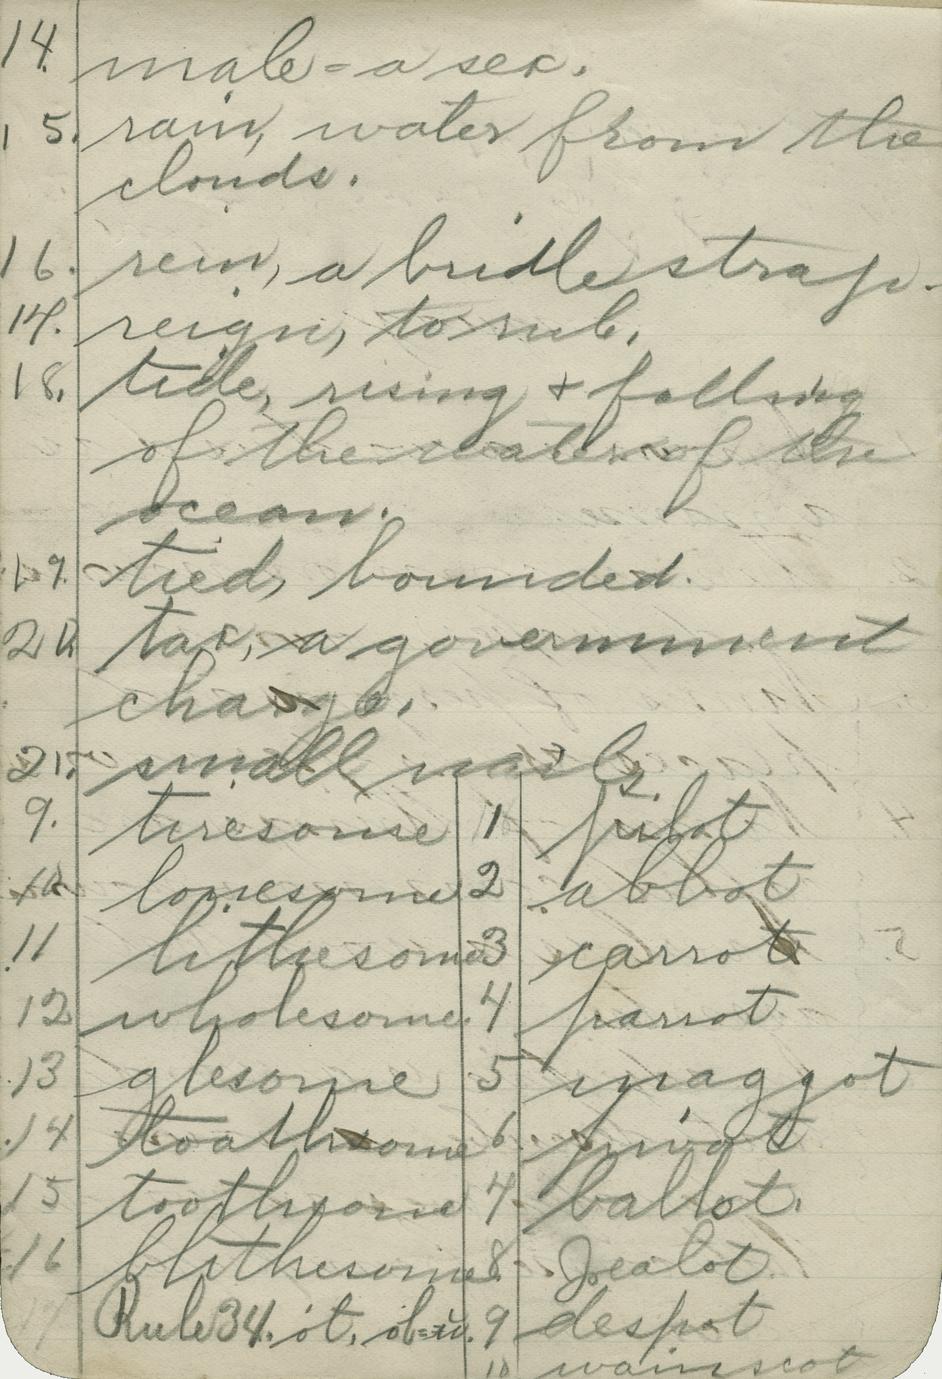 14. male = a sex.
15. rain, water from the
clouds.
16. rein, a bridle strap.
17. reign, to rul.
18. tide, rising + falling
of the water of the
ocean.
19. tied, bounded.
20 tax, a government
charge.
21. small nails.
9. tiresome
10 lonesome
11 lithesome
12 wholesome
13 glesome
14 loathsome
15 toothsome
16 blithesome
17 Rule 34. ot,
1 pilot
2 abbot
3 carrot
4 parrot
5 maggot
6. pivot
7. ballot.
8. Zealot
9 despot
10 wainscot